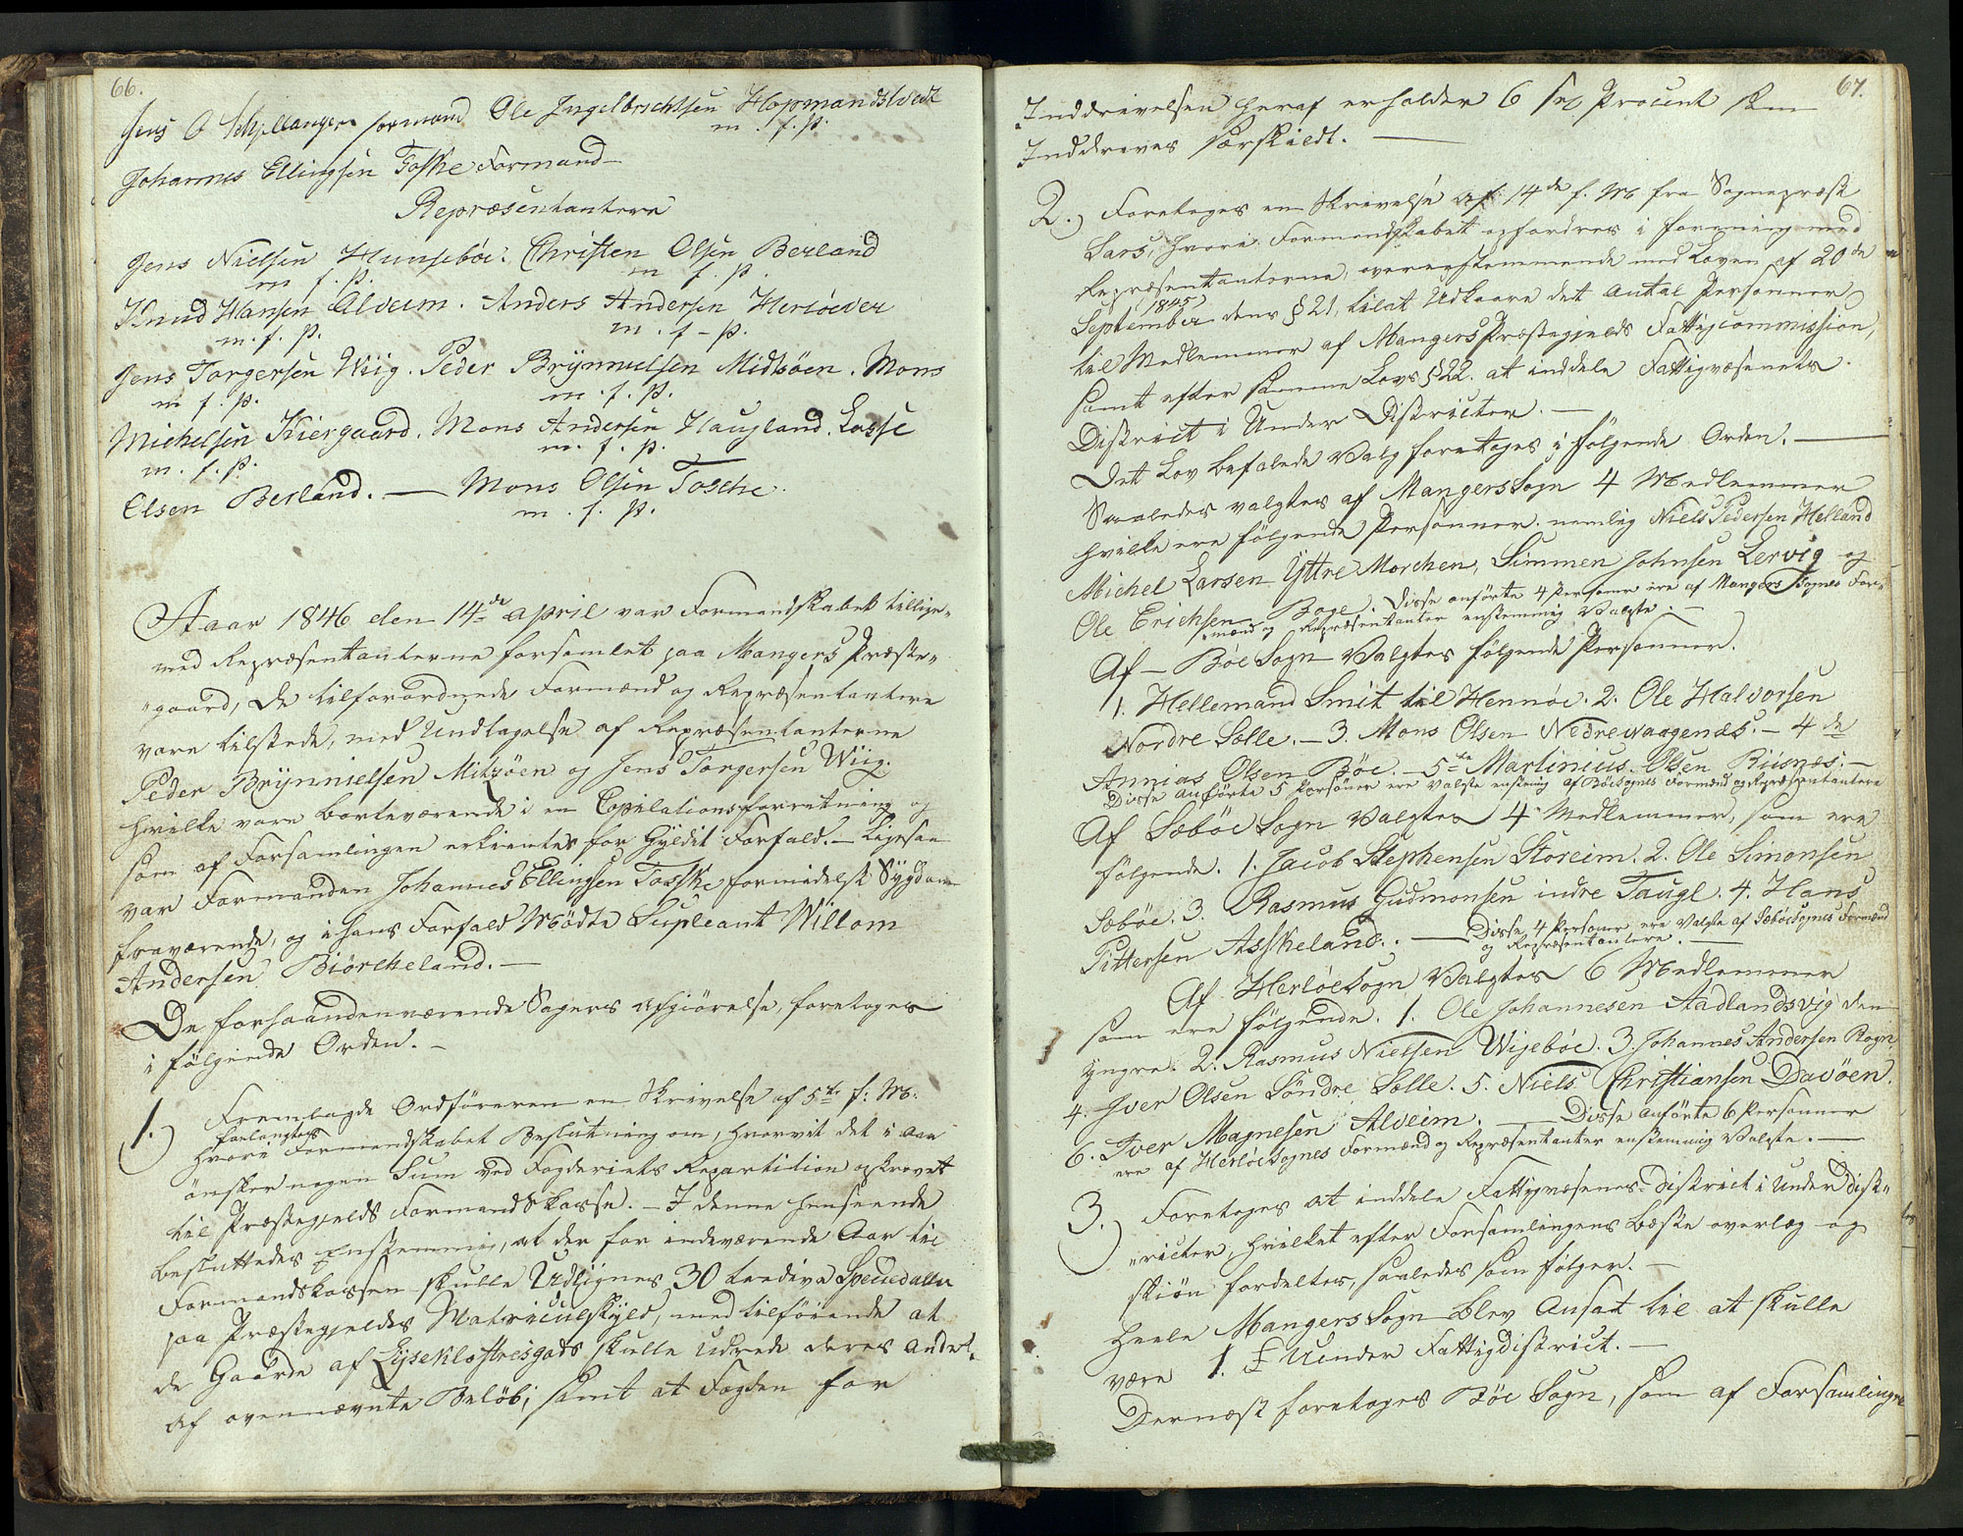 66.
Jens O Schjellanger formand Ole Ingelbrechtsen Hopmandslvedt
m. f. p.
Johannes Ellingsen Toske Formand
Repræsentantere
Jens Nielsen Hunsebøe: Christen Olsen Berland
m f. p. m f. p.
Knud Hansen Alveim. Anders Andersen Herløever
m. f. p. m. f - p.
Jens Torgersen Wiig. Peder Brÿnnielsen Midtøen. Mons
m f. p. m. f. p.
Michelsen Kiergaard. Mons Andersen Haugland. Lasse
m. f. p. m. f. p.
Olsen Berland. — Mons Olsen Tosche.
m. f. p.
Aaar 1846 den 14de april var Formandskabet tillige„
med Repræsentanterne forsamlet paa Mangers Præste„
„gaard, De tilforordnede Formænd og Repræsentantere
vare tilstede, med Undtagelse af Repræsentanterne
Peder Brÿnnielsen Mitzöen og Jens Torgersen Wiig.
hvilke vare borteværende i en Copulationsforretning og
som af Forsamlingen erkientes for Gyldit Forfald. — Ligesaa
var Formanden Johannes Ellingsen Tosske formedelst Sÿgdom
fraværende, og i hans Forfald Mödte Supleant Willom
Andersen Biörcheland. —
De forhaandenværende Sagers Afgiörelse, foretoges
i fölgende Orden. —
1.) Fremlagde Ordföreren en Skrivelse af 5te f: M:
forlangtes
hvori Formandskabet Beslutning om, hvorvit det i Aar
önsker nogen Sum ved Fogderiets Repartition opkrævet
til Præstegjelds Formandskasse. — I denne henseende
besluttedes Enstemmig, at der for indeværende Aar til
Formandskassen skulle Udlignes 30 tredive Speciedaller
paa Præstegjeldes Matriculskÿld, med tilföiende at
de Gaarde af Lÿseklostresgods skulle Udrede deres Andel
af ovennævnte Belöb; samt at Fogden for
67.
Inddrivelsen heraf erholder 6 sex Procent som
Inddreves særskildt. —
2.) Foretoges en Skrivelse af 14de f. M fra Sognepræst
Lars, hvori Formandskabet opfordres i forening med
Repræsentanterne, overensstemmende med Loven af 20de
1845
September dens § 21, til at Udkaare det Antal Personner
til Medlemmer af Mangers Præstegjelds Fattigcommission,
samt efter samme Lovs § 22. at inddele Fattigvæsenets
District i Under Districter. —
Det Lov befalede Valg foretoges i fölgende Orden. —
Saaledes valgtes af Mangers Sogn 4 Medlemmer
hvilke ere fölgende Personner. nemlig Niels Pedersen Helland
Michel Larsen Ÿttre Morchen, Simmen Johnsen Lervig og
Ole Erichsen Boge. Disse anförte 4 Personer ere af Mangers Sognes For„
„mænd og Repræsentanter enstemmig Valgte. —
Af Böe Sogn Valgtes fölgende Personner.
1. Hellemand Smit til Hennöe. 2. Ole Halvorsen
Nordre Sælle. — 3. Mons Olsen Nedrewaagenæs. — 4de
Annias Olsen Böe. — 5te Martinius Olsen Büsnæs. —
Disse anförte 5 Personer ere Valgte enstemig af Böesognes Formænd og Repræsentantere
Af Sæböe Sogn Valgtes 4 Medlemmer, som ere
fölgende. 1. Jacob Stephensen Storeim. 2. Ole Simonsen
Sæböe. 3. Rasmus Gudmonsen indre Taugl. 4. Hans
Pittersen Asskeland. — Disse 4 Personer ere Valgte af Sæböe Sognes Formænd
og Repræsentantere. —
Af Herlöe Sogn Valgtes 6 Medlemmer
som ere fölgende. 1. Ole Johannesen Aadlandsvig den
yngre. 2. Rasmus Nielsen Wijeböe. 3. Johannes Andersen Rogn
4. Iver Olsen Söndre Sælle. 5. Niels Christiansen Davöen.
6. Iver Magnesen Alveim. — Disse Anförte 6 Personner
ere af Herlöesognes Formænd og Repræsentanter enstemmig Valgte. —
3.) Foretoges at inddele Fattigvæsenes District i Under Dist„
„ricter, hvilket efter Forsamlingens bedste overlæg og
skiön fordeltes, saaledes som fölger. —
Heele Mangers Sogn blev Ansat til at skulle
være 1. Et Under Fattigdistrict. —
Dernæst foretoges Böe Sogn, som af Forsamlingen